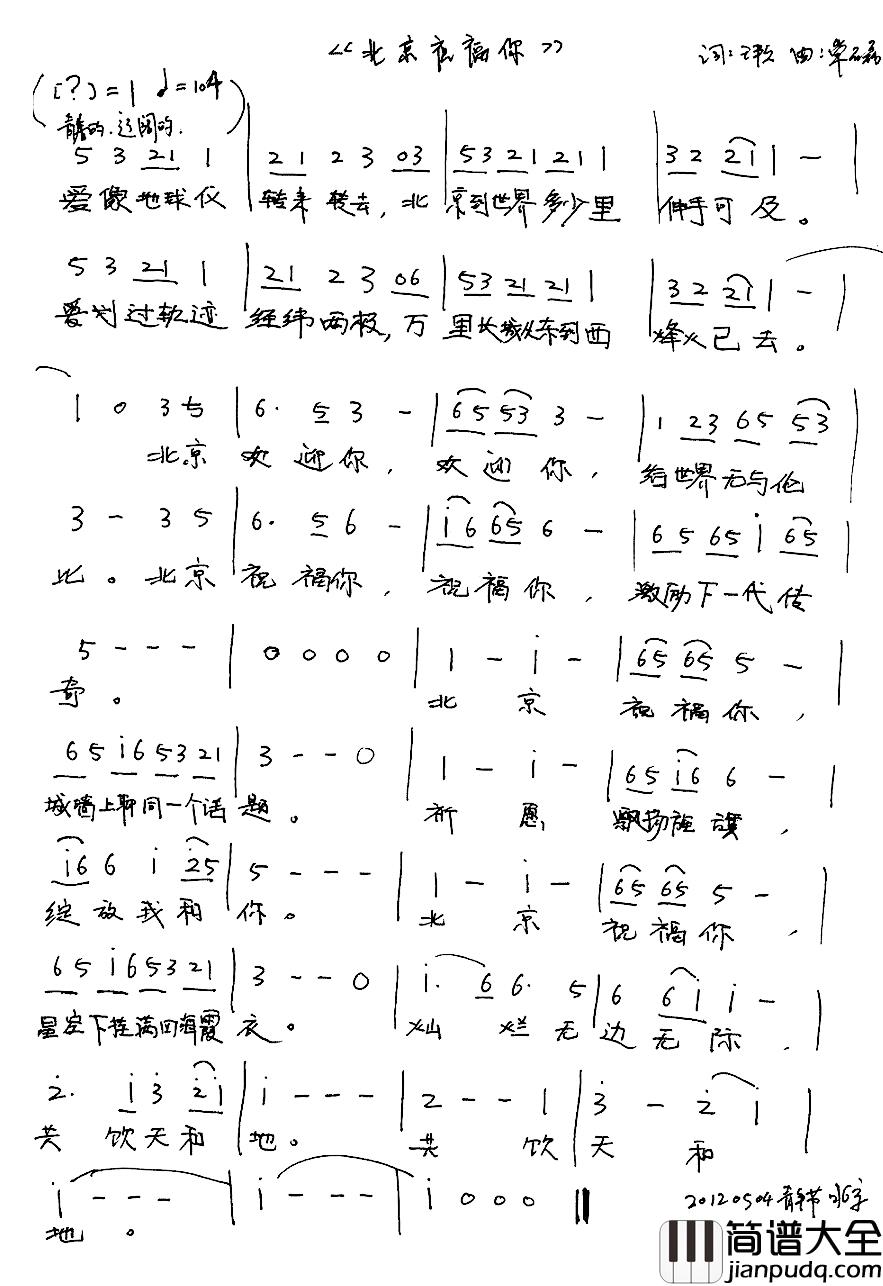 《北京祝福你》
词：王耿 曲：常磊
(？)=1 ♩=104
青春的.辽阔的.
5 3 21 1 | 21 2 3 03 | 53 21 21 1 | 32 21 1 — |
爱像地球仪 转来转去，北京到世界多少里 伸手可及。
5 3 21 1 | 21 2 3 06 | 53 21 21 1 | 32 21 1 — |
爱划过轨迹 经纬两极，万里长城从东到西 烽火已去。
1 0 35 | 6· 5 3 — | 65 53 3 — | 1 23 65 53 |
北京欢迎你，欢迎你，给世界无与伦
3 — 3 5 | 6· 5 6 — | i6 65 6 — | 65 65 i 65 |
比。北京祝福你，祝福你，激励下一代传
5 - - - | 0 0 0 0 | 1 — i — | 65 65 5 — |
奇。 北京祝福你，
65 i6 53 21 | 3 - - 0 | 1 — i — | 65 i6 6 — |
城墙上聊同一个话题。 祈愿 飘扬旌旗，
i6 6 i 25 | 5 - - - | 1 — i — | 65 65 5 — |
绽放我和你。 北京祝福你，
65 i6 53 21 | 3 - - 0 | i· 6 6· 5 | 6 6i i — |
星空下挂满四海霞衣。 灿烂无边无际，
2· i3 2i | i - - - | 2 - - 1 | 3 — 2 i |
共饮天和地。 共饮天和
i - - - | i - - - | i 0 0 0 ‖
地。
20120504青年节
简谱大全
jianpudq.com